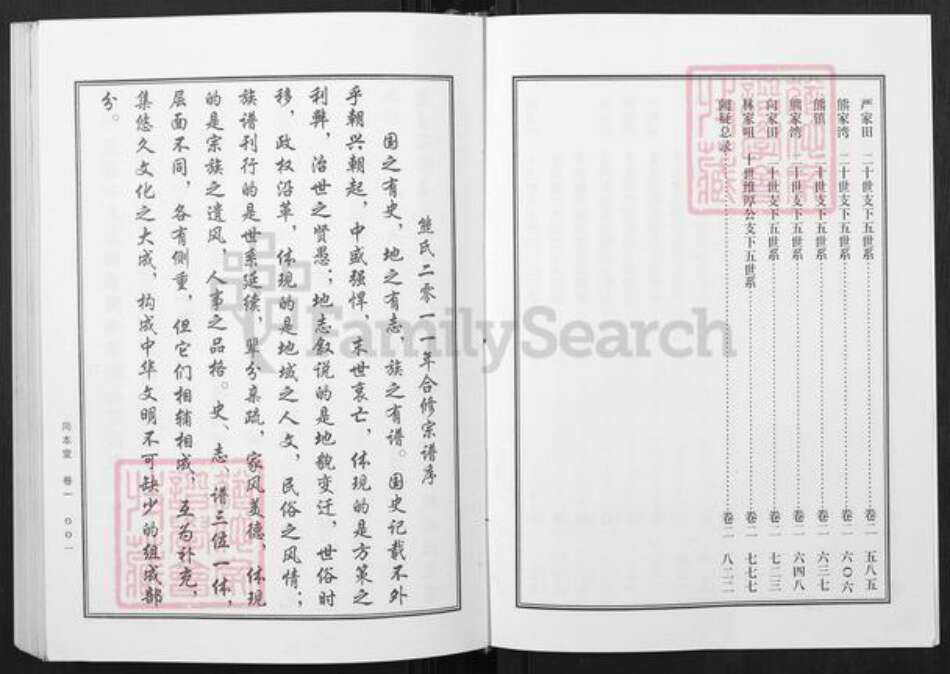 严家田　二十世支下五世系……卷二　五八五
熊家湾　二十世支下五世系……卷二　六〇六
熊镇　二十世支下五世系……卷二　六三七
熊家湾　二十世支下五世系……卷二　六四八
向家田　二十世支下五世系……卷二　七二三
林家咀　十世维厚公支下五世系……卷二　七七七
阙疑总录……卷二　八二二
熊氏二零一一年合修宗谱序
国之有史，地之有志，族之有谱。国史记载不外
乎朝兴朝起，中盛强悍，末世衰亡，体现的是方策之
利弊，治世之贤愚；地志叙说的是地貌变迁，世俗时
移，政权沿革，体现的是地域之人文，民俗之风情；
族谱刊行的是世系延续，辈分亲疏，家风美德，体现
的是宗族之遗风，人事之品格。史、志、谱三位一体，
层面不同，各有侧重，但它们相辅相成，互为补充，
集悠久文化之大成，构成中华文明不可缺少的组成部
分。
同本堂　卷一　〇〇一
FamilySearch